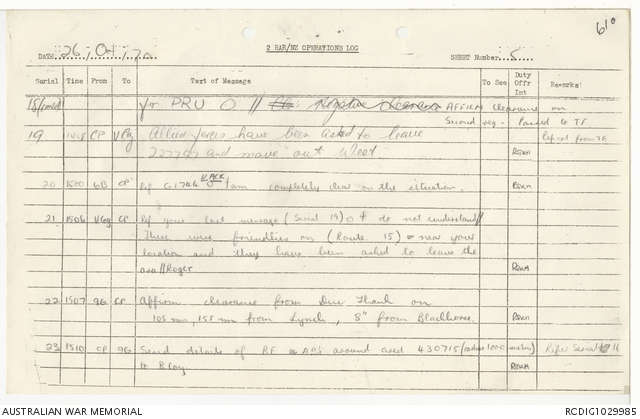 610
2 RAR/NZ OPERATIONS LOG
DATE 26/Oct/70 SHEET Number 5
Serial Time From To Text of Message To See Duty Offr Int Remarks
18/contd for PRU O // Negative clearance AFFIRM clearance on
Second req - Passed to TF
19 CP VCoy Allied forces have been asked to leave Relayed from TF
and move out West
20 1500 CP Ref G1746 I am completely clear on the situation.
21 1506 VCoy CP Ref your last message (Serial 19) I do not understand//
There were friendlies on (Route 15) near your
location and they have been asked to leave the
area//Roger
22 1507 CP Affirm clearance from Duc Thanh on
105 mm, 155 mm from Lynch, 8" from Blackhorse.
23 1510 CP Send details of RF APs around coord 430715 (radius 1000 metres) Refer Serial 16
to B Coy
AUSTRALIAN WAR MEMORIAL RCDIG1029985